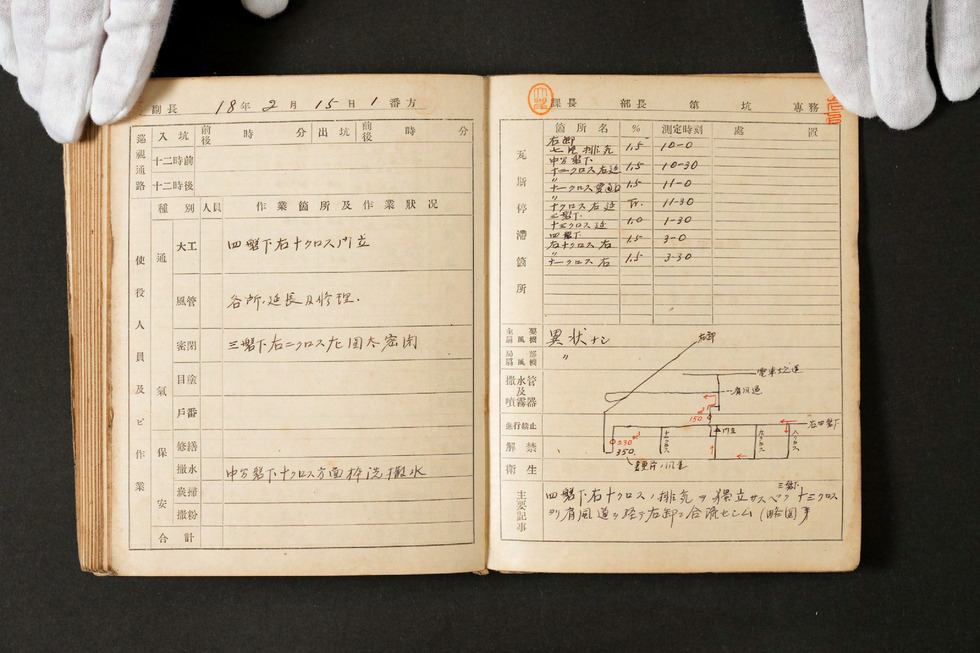 副長 18年2月15日1番方
巡視通路 入坑 前後 時 分 出坑 前後 時 分
十二時前
十二時後
使役人員及ビ作業
種別 人員 作業箇所及作業状况
通氣
大工 四盤下右十クロス門立
風管 各所延長及修理.
密閉 三盤下右二クロス 密閉
目塗
戸番
保安
修繕
撒水 中切盤下十クロス方面枠洗撒水
炭掃
撒粉
合計
課長 部長 第 坑 専務
瓦斯停滞箇所
箇所名 % 測定時刻 處置
右卸
七尺排気 1.5 10-0
十二クロス右延 1.5 10-30
〃
十一クロス 1.5 11-0
〃
十クロス右延 Tr. 11-30
三盤下
十三クロス延 1.0 1-30
四盤下
右十クロス右 1.5 3-0
〃
十一クロス右 1.5 3-30
主要扇風機 異状ナシ
局部扇風機 〃
撒水管及噴霧器
進行禁止
解禁
衛生
右卸
電車坑道
肩風道
150
230
350
門立
十一クロス
右四盤下
主要記事
四盤下右十クロスノ排気ヲ独立サスベク三盤下十三クロス
肩風道ヲ経テ右卸ニ合流セシム (略図